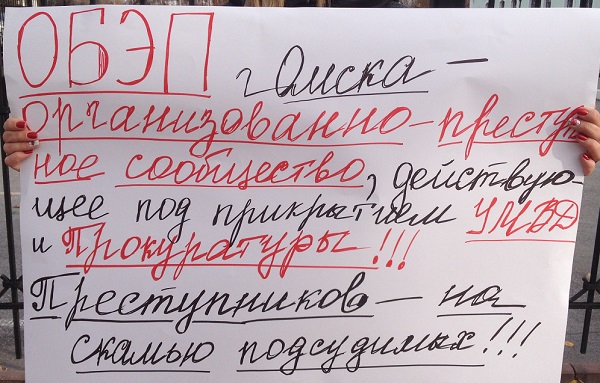 ОБЭП г Омска –
организованно-преступ
ное сообщество, действую-
щее под прикрытием УМВД
и Прокуратуры!!!
Преступников – на
скамью подсудимых!!!